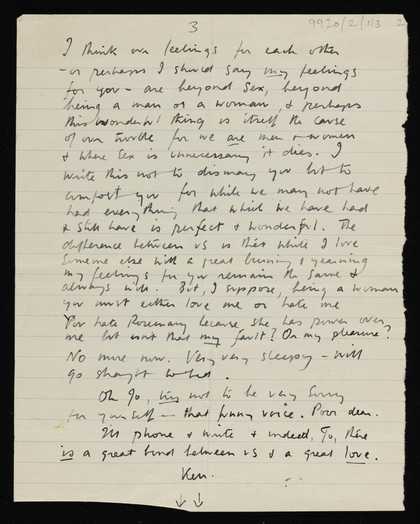 3
9920/2/1/3 2
I think our feelings for each other
- or perhaps I should say my feelings
for you - are beyond sex, beyond
being a man or a woman, & perhaps
this wonderful thing is itself the cause
of our trouble for we are men & women
& where sex is unnecessary it dies. I
write this not to dismay you but to
comfort you for while we may not have
had everything that which we have had
& still have is perfect & wonderful. The
difference between us is this while I love
someone else with a great burning & yearning
my feelings for you remain the same &
always will. But, I suppose, being a woman
you must either love me or hate me
You hate Rosemary because she has power over
me but isn't that my fault? Or my pleasure?
No more now. Very very sleepy - will
go straight to bed.
Oh Jo, try not to be very sorry
for yourself - that funny voice. Poor dear.
I'll phone & write & indeed, Jo, there
is a great bond between us & a great love.
Ken.